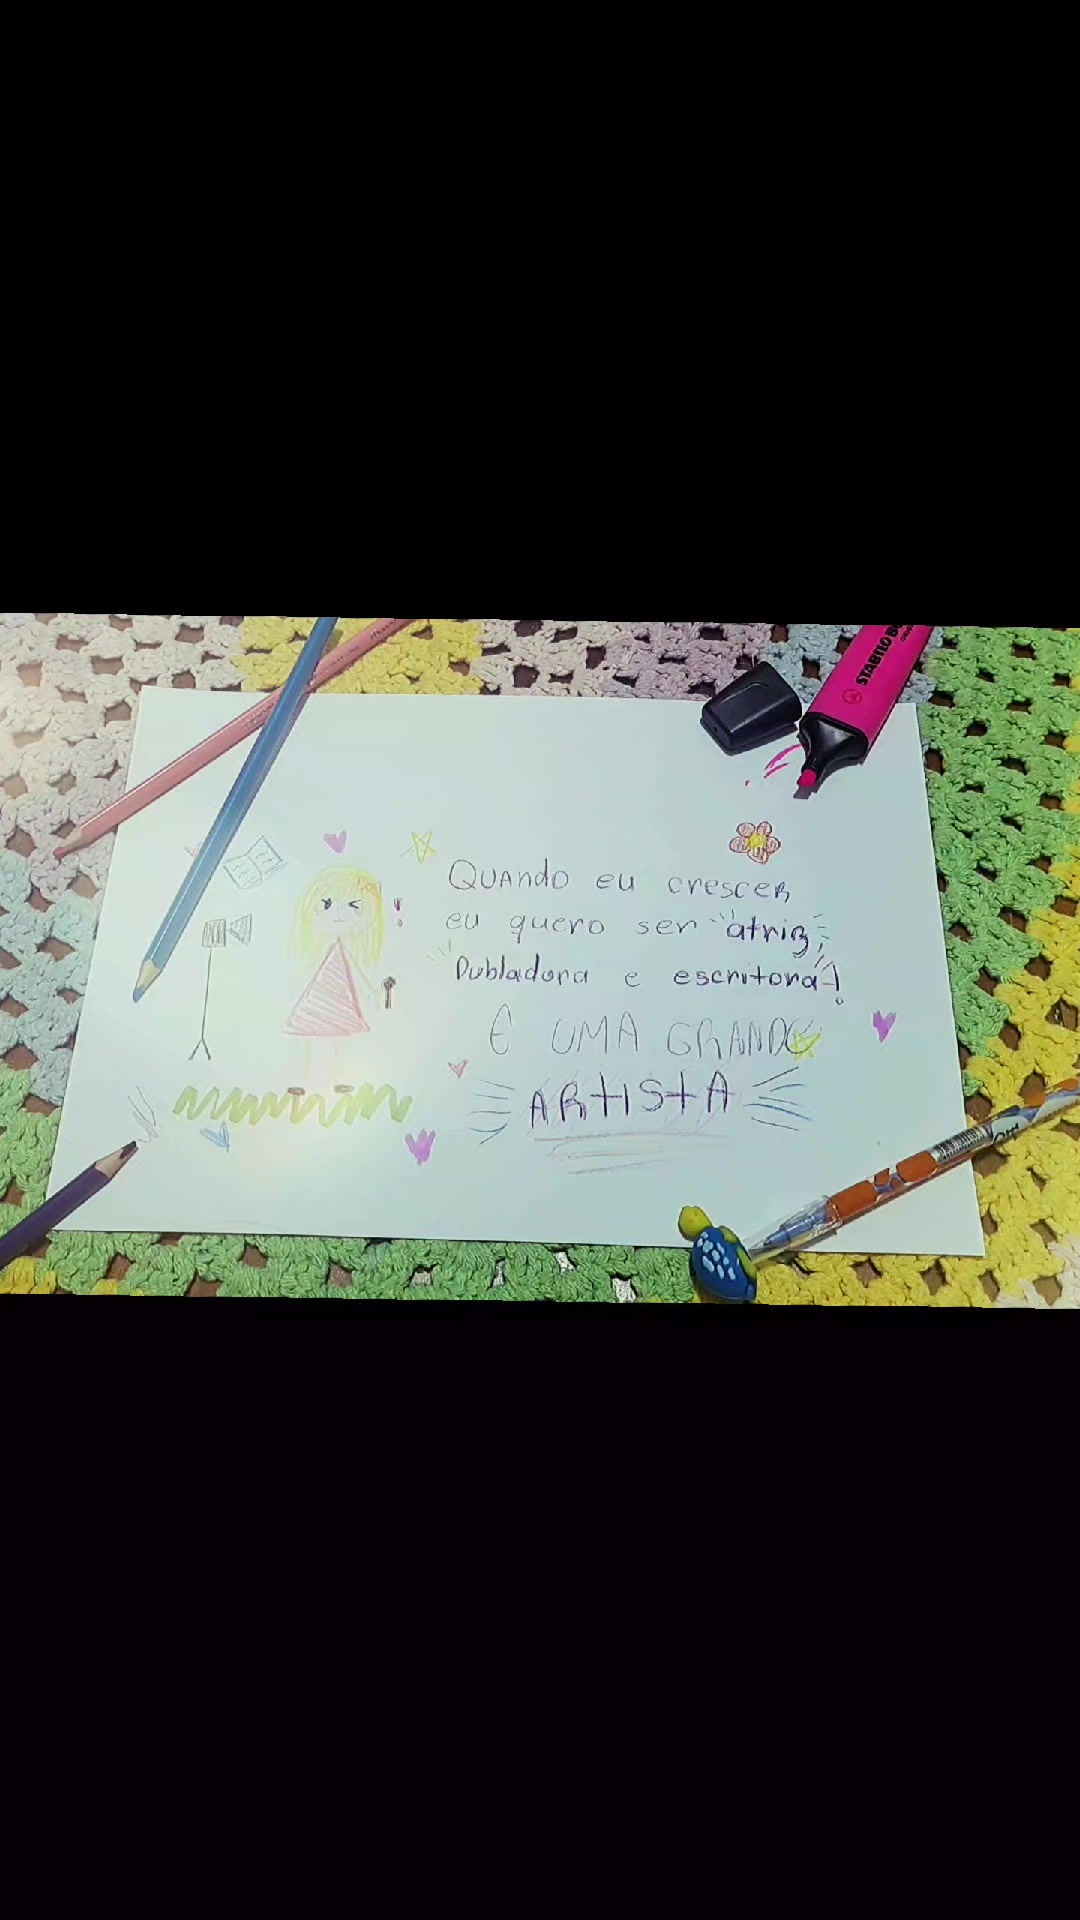 STABILO BO
QUANDO eu crescer
eu quero ser atriz,
Dubladora e escritora!
E UMA GRANDE
ARtIStA